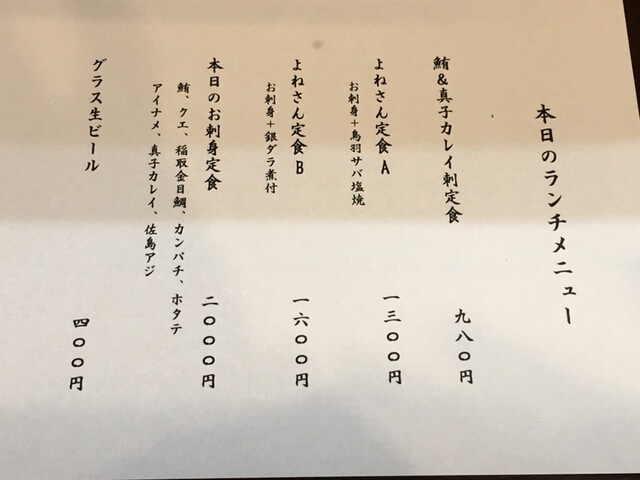 本日のランチメニュー
鮪&真子カレイ刺定食 九八〇円
よねさん定食A 一三〇〇円
お刺身+鳥羽サバ塩焼
よねさん定食B 一六〇〇円
お刺身+銀ダラ煮付
本日のお刺身定食 二〇〇〇円
鮪、クエ、稲取金目鯛、カンパチ、ホタテ
アイナメ、真子カレイ、佐島アジ
グラス生ビール 四〇〇円